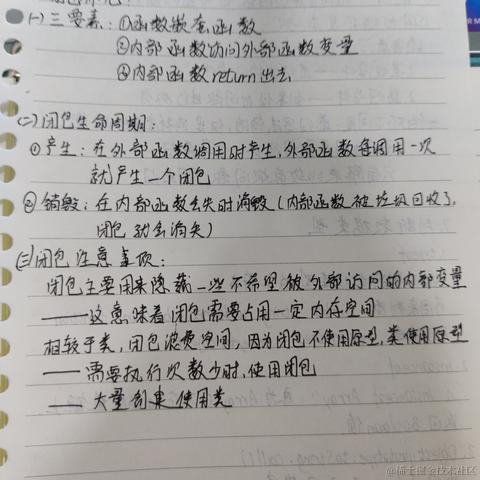 (一)三要素:①函数嵌套函数
②内部函数访问外部函数变量
③内部函数return出去
(二)闭包生命周期:
①产生:在外部函数调用时产生,外部函数每调用一次
就产生一个闭包
②销毁:在内部函数丢失时消毁(内部函数被垃圾回收了,
闭包就会消失)
(三)闭包注意事项:
闭包主要用来隐藏一些不希望被外部访问的内部变量
——这意味着闭包需要占用一定内存空间
相较于类,闭包浪费空间,因为闭包不使用原型,类使用原型
——需要执行次数少时,使用闭包
——大量创建使用类
@稀土掘金技术社区